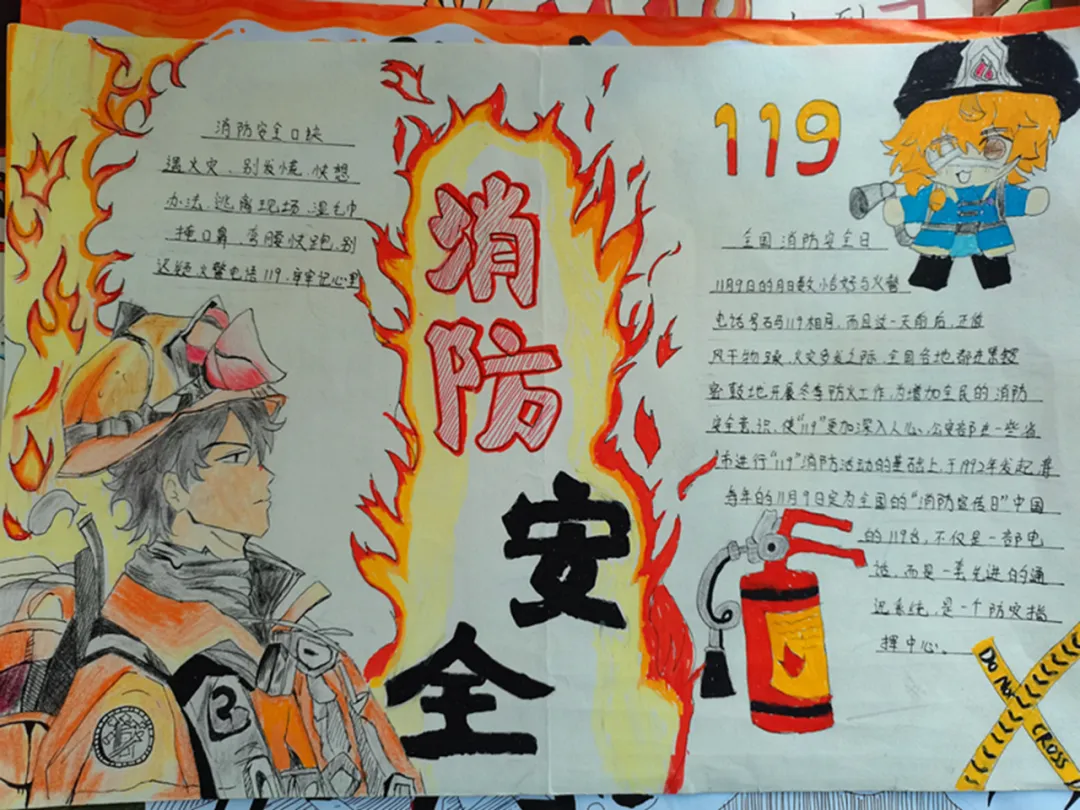 消防安全口诀
遇火灾、别发慌、快想
办法、逃离现场、湿毛巾
捂口鼻、弯腰快跑、别
迟疑火警电话119、牢牢记心里
消
防
安
全
119
全国消防安全日
11月9日的月日数小恰好与火警
电话号码119相同,而且这一天前后,正值
风干物燥、火灾多发之际,全国各地都在紧锣
密鼓地开展冬季防火工作,为增加全民的消防
安全意识,使"119"更加深入人心、公安部在一些省
市进行"119"消防活动的基础上,于1992年发起,将
每年的11月9日定为全国的"消防宣传日"中国
的119台,不仅是一部电
话,而是一套先进的通
讯系统,是一个防灾指
挥中心。
DO NOT CROSS